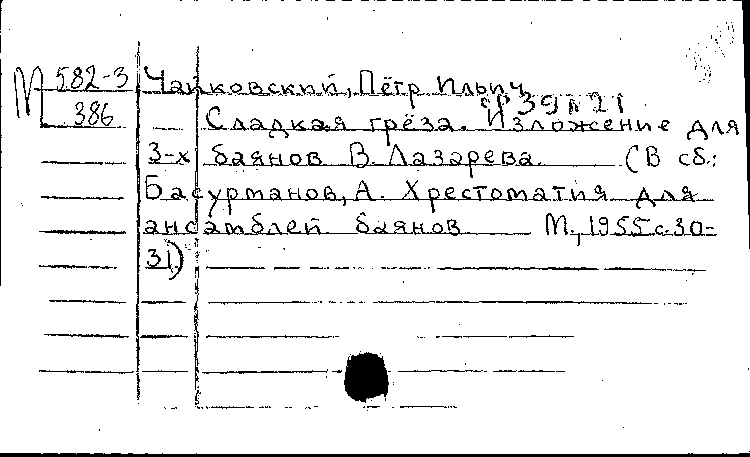 М 582-3 Чайковский, Пётр Ильич
386 ор 39 n 21
Сладкая грёза. Изложение для
3-х баянов В. Лазарева. (В сб.:
Басурманов, А. Хрестоматия для
ансамблей баянов М., 1955 с.30-
31)